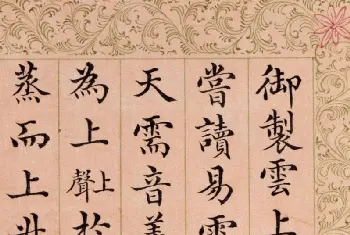 御製雲上
嘗讀易
天需音
為上聲上於
蒸而上